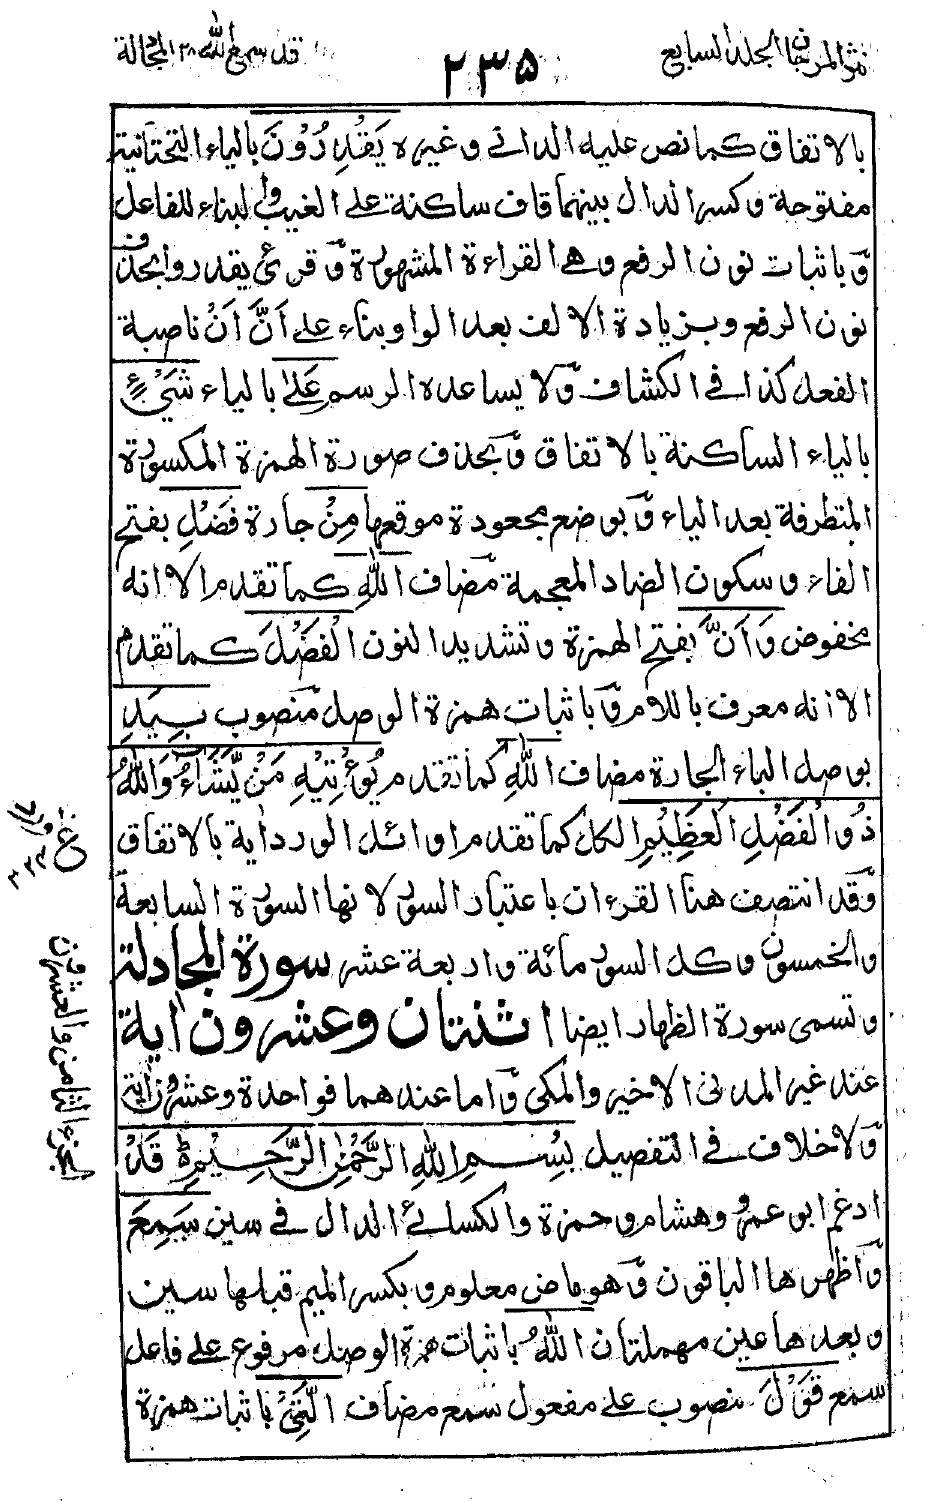 نثر المرجان الجلد السابع
٢٣٥
قد سمع الله ٢٨ المجادلة
بالاتفاق كما نص عليه الداني وغيره يَقْدِرُوْنَ بالياء التحتانية
مفتوحة وكسر الدال بينهما قاف ساكنة على الغيب والبناء للفاعل
وباثبات نون الرفع وهي القراءة المشهورة وقرئ يقدروا بحذف
نون الرفع وبزيادة الالف بعد الواو بناء على اَنَّ اَنْ ناصبة
الفعل كذا في الكشاف ولا يساعده الرسم عَلىٰ بالياء شَيْءٍ
بالياء الساكنة بالاتفاق وبحذف صورة الهمزة المكسورة
المتطرفة بعد الياء وبوضع مجعودة موقعها مِنْ جارة فَضْلِ بفتح
الفاء وسكون الضاد المعجمة مضاف اللهِ كما تقدم الا انه
مخفوض وَاَنَّ بفتح الهمزة وتشديد النون الْفَضْلَ كما تقدم
الا انه معرف باللام وباثبات همزة الوصل منصوب بِيَدِ
بوصل الباء الجارة مضاف اللهِ كما تقدم يُؤْتِيْهِ مَنْ يَّشَاءُ وَاللهُ
ذُو الْفَضْلِ الْعَظِيْمِ الكل كما تقدم اوائل الورد اية بالاتفاق
وقد انتصف هنا القرءان باعتبار السور لانها السورة السابعة
والخمسون وكل السور مائة واربعة عشر سورة المجادلة
وتسمى سورة الظهار ايضا اثنتان وعشرون اية
عند غير المدني الاخير والمكي واما عندهما فواحدة وعشرون اية
ولا خلاف في التفصيل بِسْمِ اللهِ الرَّحْمٰنِ الرَّحِيْمِ قَدْ
ادغم ابو عمرو وهشام وحمزة والكسائي الدال في سين سَمِعَ
واظهرها الباقون وهو ماض معلوم وبكسر الميم قبلها سين
وبعدها عين مهملتان اللهُ باثبات همزة الوصل مرفوع على فاعل
سمع قَوْلَ منصوب على مفعول سمع مضاف الَّتِيْ باثبات همزة
ع
الجزء الثامن والعشرون